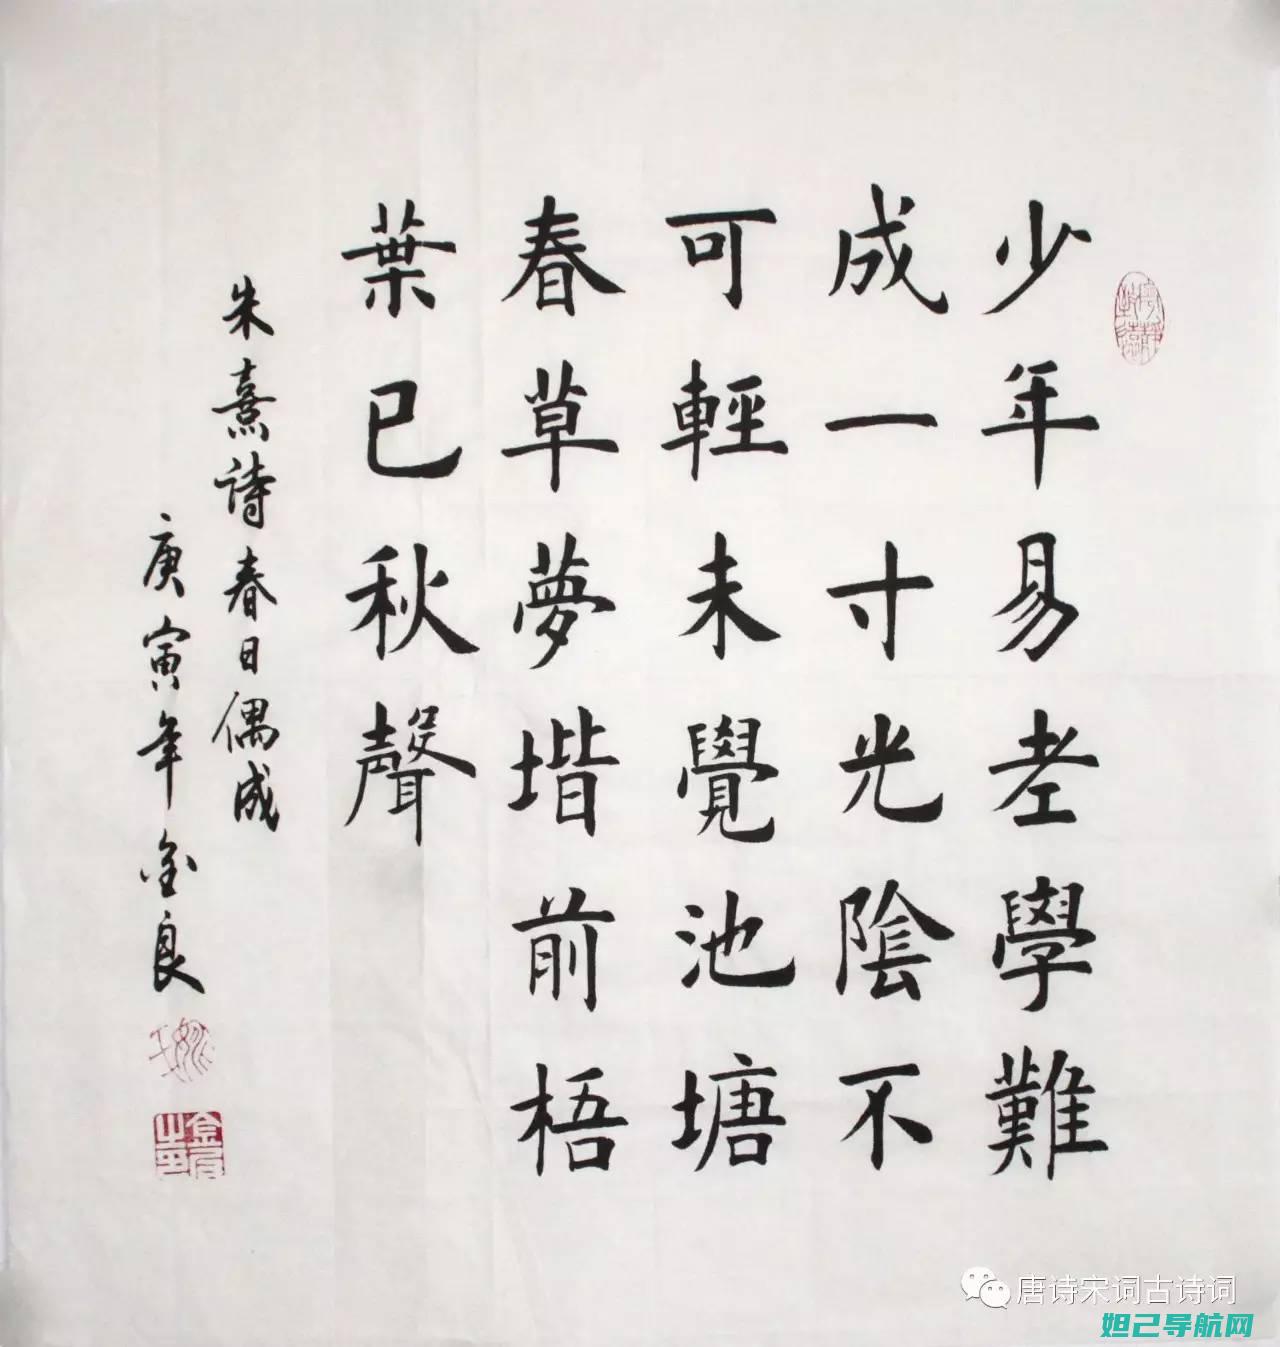 少年易老學難
成一寸光陰不
可輕未覺池塘
春草夢堦前梧
葉已秋聲
朱熹诗春日偶成
庚寅年金良
金良之印
唐诗宋词古诗词
妲己导航网